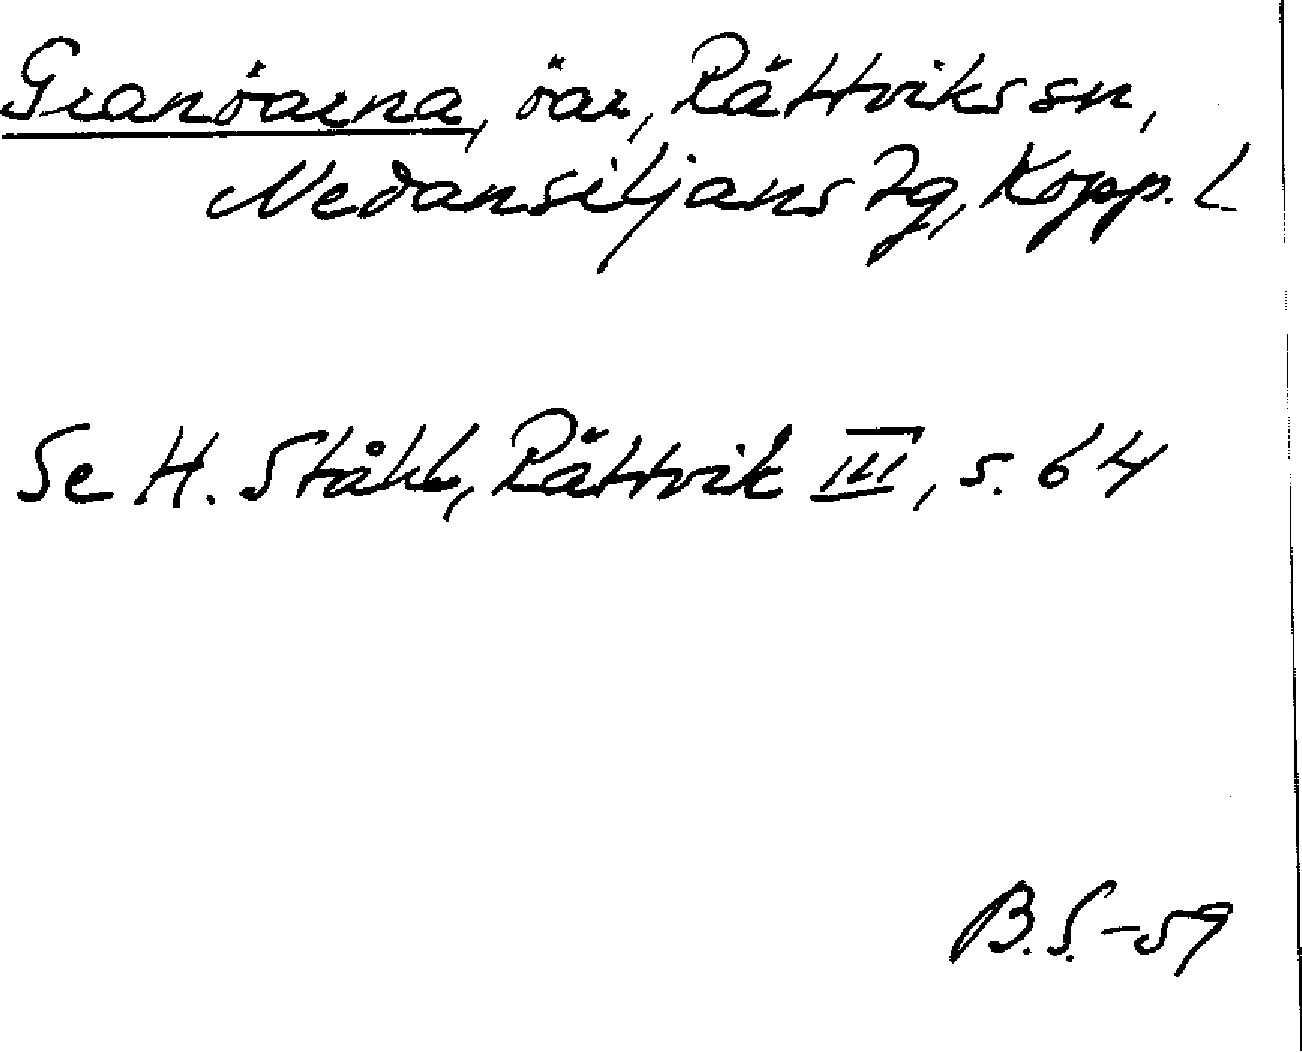 Granöarna, öar, Rättviks sn,
Nedansiljans tg, Kopp. l
Se H. Ståhl, Rättvik III, s. 64
B.S.-59